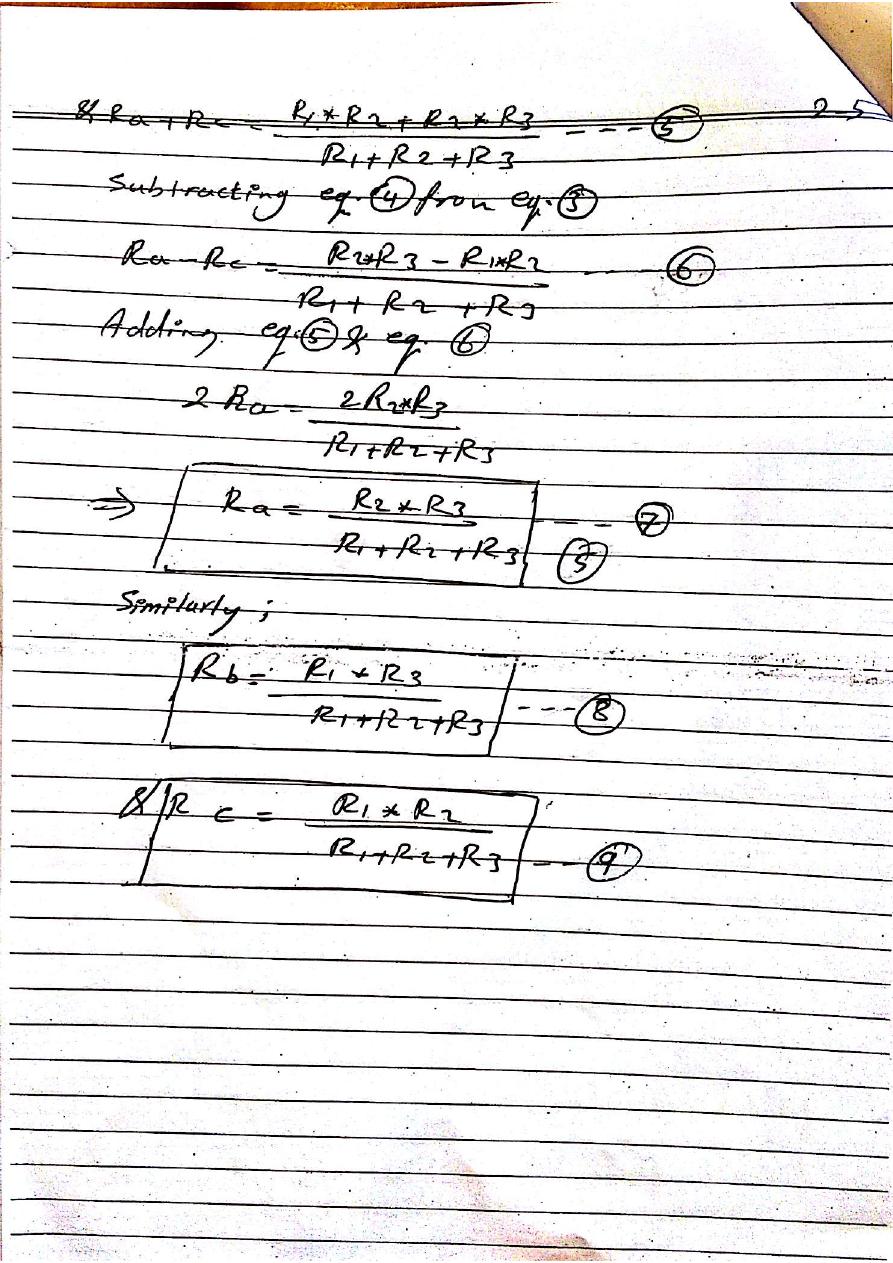 & Ra + Rc = R1 * R2 + R2 * R3 / R1 + R2 + R3 ---- (5)
25
Subtracting eq. (4) from eq. (3)
Ra - Rc = R2*R3 - R1*R2 / R1 + R2 + R3 ---- (6)
Adding eq. (5) & eq. (6)
2 Ra = 2 R2*R3 / R1 + R2 + R3
⇒ Ra = R2 * R3 / R1 + R2 + R3 ---- (7)
(5)
Similarly ;
Rb = R1 * R3 / R1 + R2 + R3 --- (8)
& Rc = R1 * R2 / R1 + R2 + R3 --- (9)